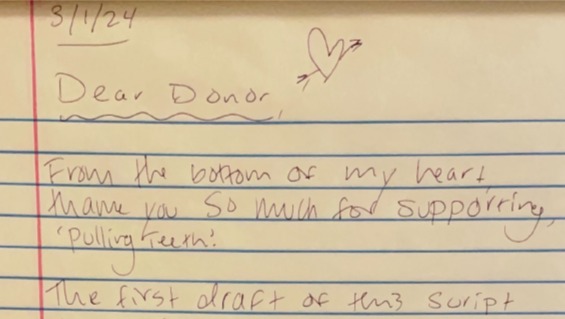 3/1/24
Dear Donor,
From the bottom of my heart
thank you so much for supporting,
'Pulling Teeth'.
The first draft of this script